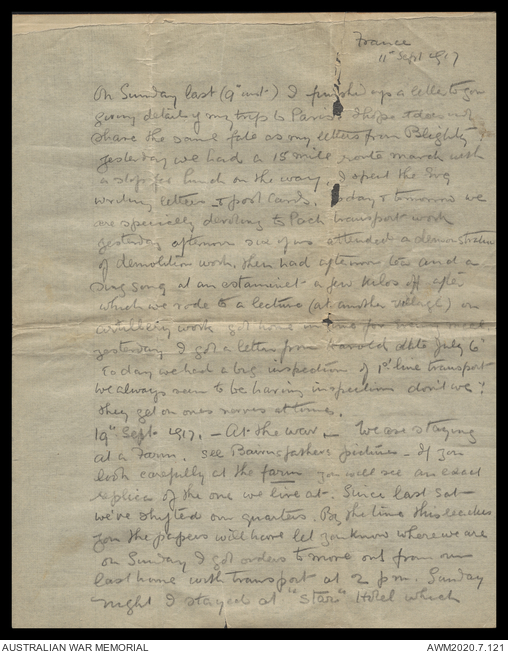 France
11" Sept 1917
On Sunday last (9" inst) I finished up a letter to you
giving details of my trip to Paris I hope it does not
share the same fate as my letters from Blighty
yesterday we had a 15 mile route march with
a stop for lunch on the way. I spent the Evg
writing letters & post cards. Today & tomorrow we
are specially devoting to Pack transport work
yesterday afternoon six of us attended a demonstration
of demolition work, then had afternoon tea and a
sing song at an estaminet a few kilos off after
which we rode to a lecture (at another village) on
artillery work got home in time for mess
yesterday I got a letter from Harold date July 6"
Today we had a big inspection of 1st line transport
we always seem to be having inspections don't we?
they get on ones nerves at times.
19" Sept. 1917. — At the war — We are staying
at a Farm. see Bairnsfathers pictures — If you
look carefully at the farm you will see an exact
replica of the one we live at. Since last Sat
we've shifted our quarters. By the time this reaches
you the papers will have let you know where we are
on Sunday I got orders to move out from our
last home with transport at 2 pm. Sunday
night I stayed at "Star" Hotel which
AUSTRALIAN WAR MEMORIAL
AWM2020.7.121